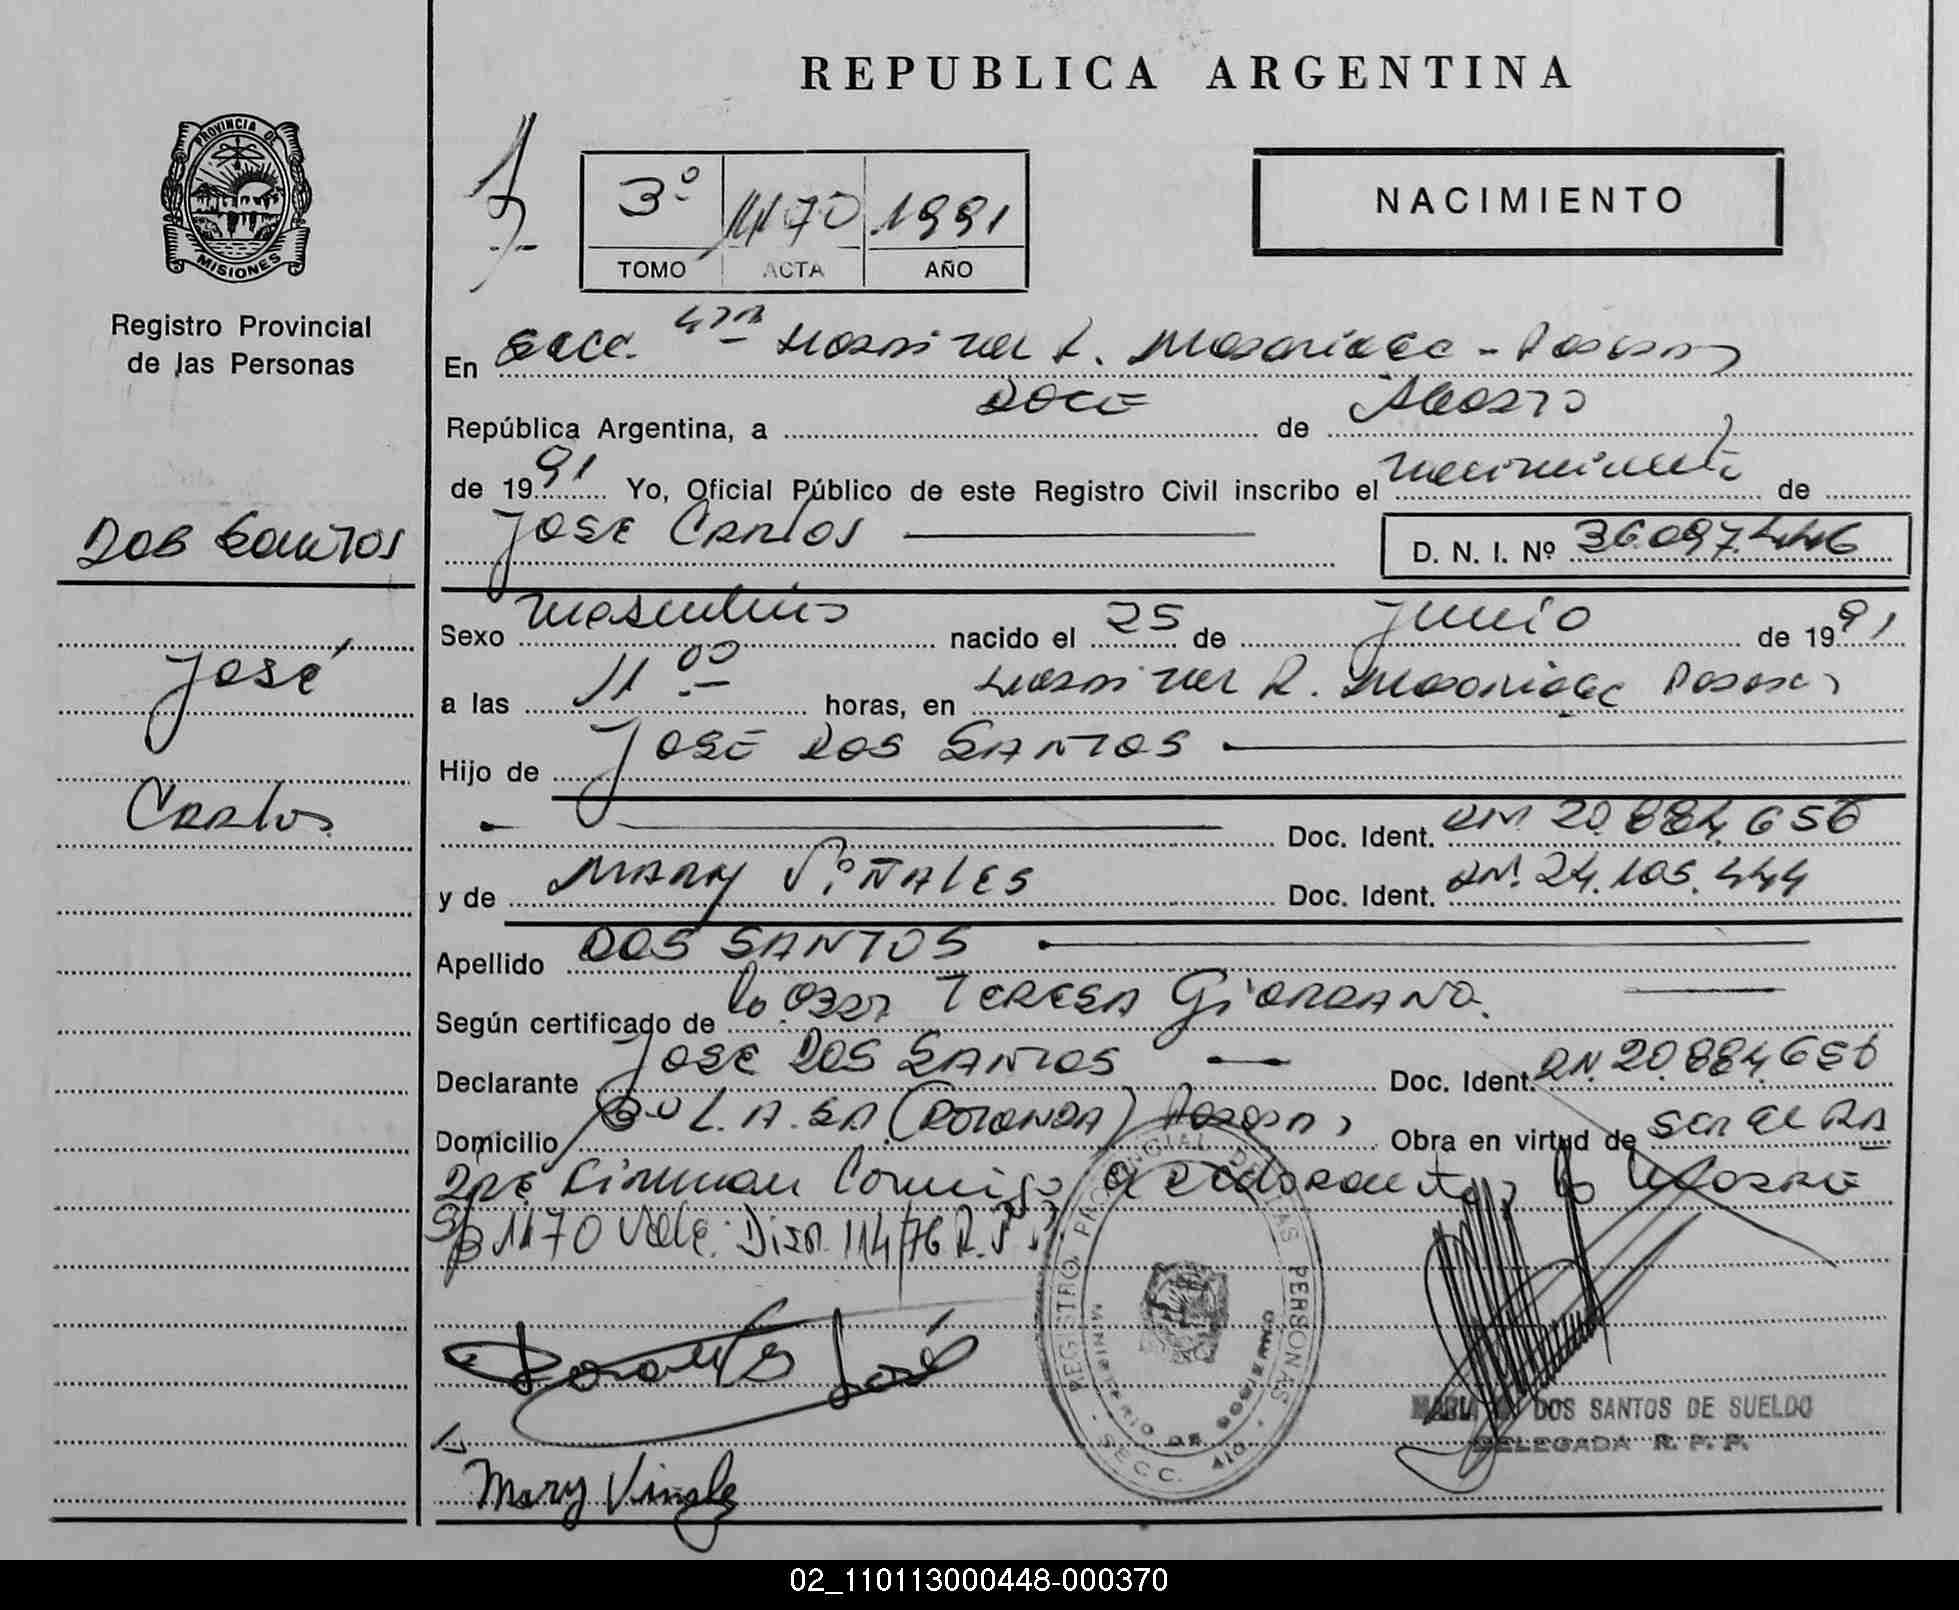 REPUBLICA ARGENTINA
PROVINCIA DE
MISIONES
Registro Provincial
de las Personas
3º 1170 1991
TOMO ACTA AÑO
NACIMIENTO
En Secc. 4ta Hospital R. Madariaga - Posadas
República Argentina, a DOCE de Agosto
de 1991 Yo, Oficial Público de este Registro Civil inscribo el nacimiento de
JOSE CARLOS D. N. I. Nº 36.097.446
DOS SANTOS
José
Carlos
Sexo masculino nacido el 25 de Junio de 1991
a las 11 00 horas, en Hospital R. Madariaga Posadas
Hijo de JOSE DOS SANTOS
Doc. Ident. DNI. 20.884.656
y de MARY VIÑALES Doc. Ident. DNI. 24.105.444
Apellido DOS SANTOS
Según certificado de TERESA GIORDANO.
Declarante JOSE DOS SANTOS Doc. Ident. DNI. 20.884.656
Domicilio (ROTONDA) Posadas Obra en virtud de ser el Pa
dre Firman Conmigo el declarante y la Madre
S/B 1170 Vale: Disp. 114/76 R.P.P.
REGISTRO PROVINCIAL DE LAS PERSONAS
MINISTERIO DE GOBIERNO
SECC. 4TA
José
Mary Viñales
DOS SANTOS DE SUELDO
DELEGADA R. P. P.
02_110113000448-000370